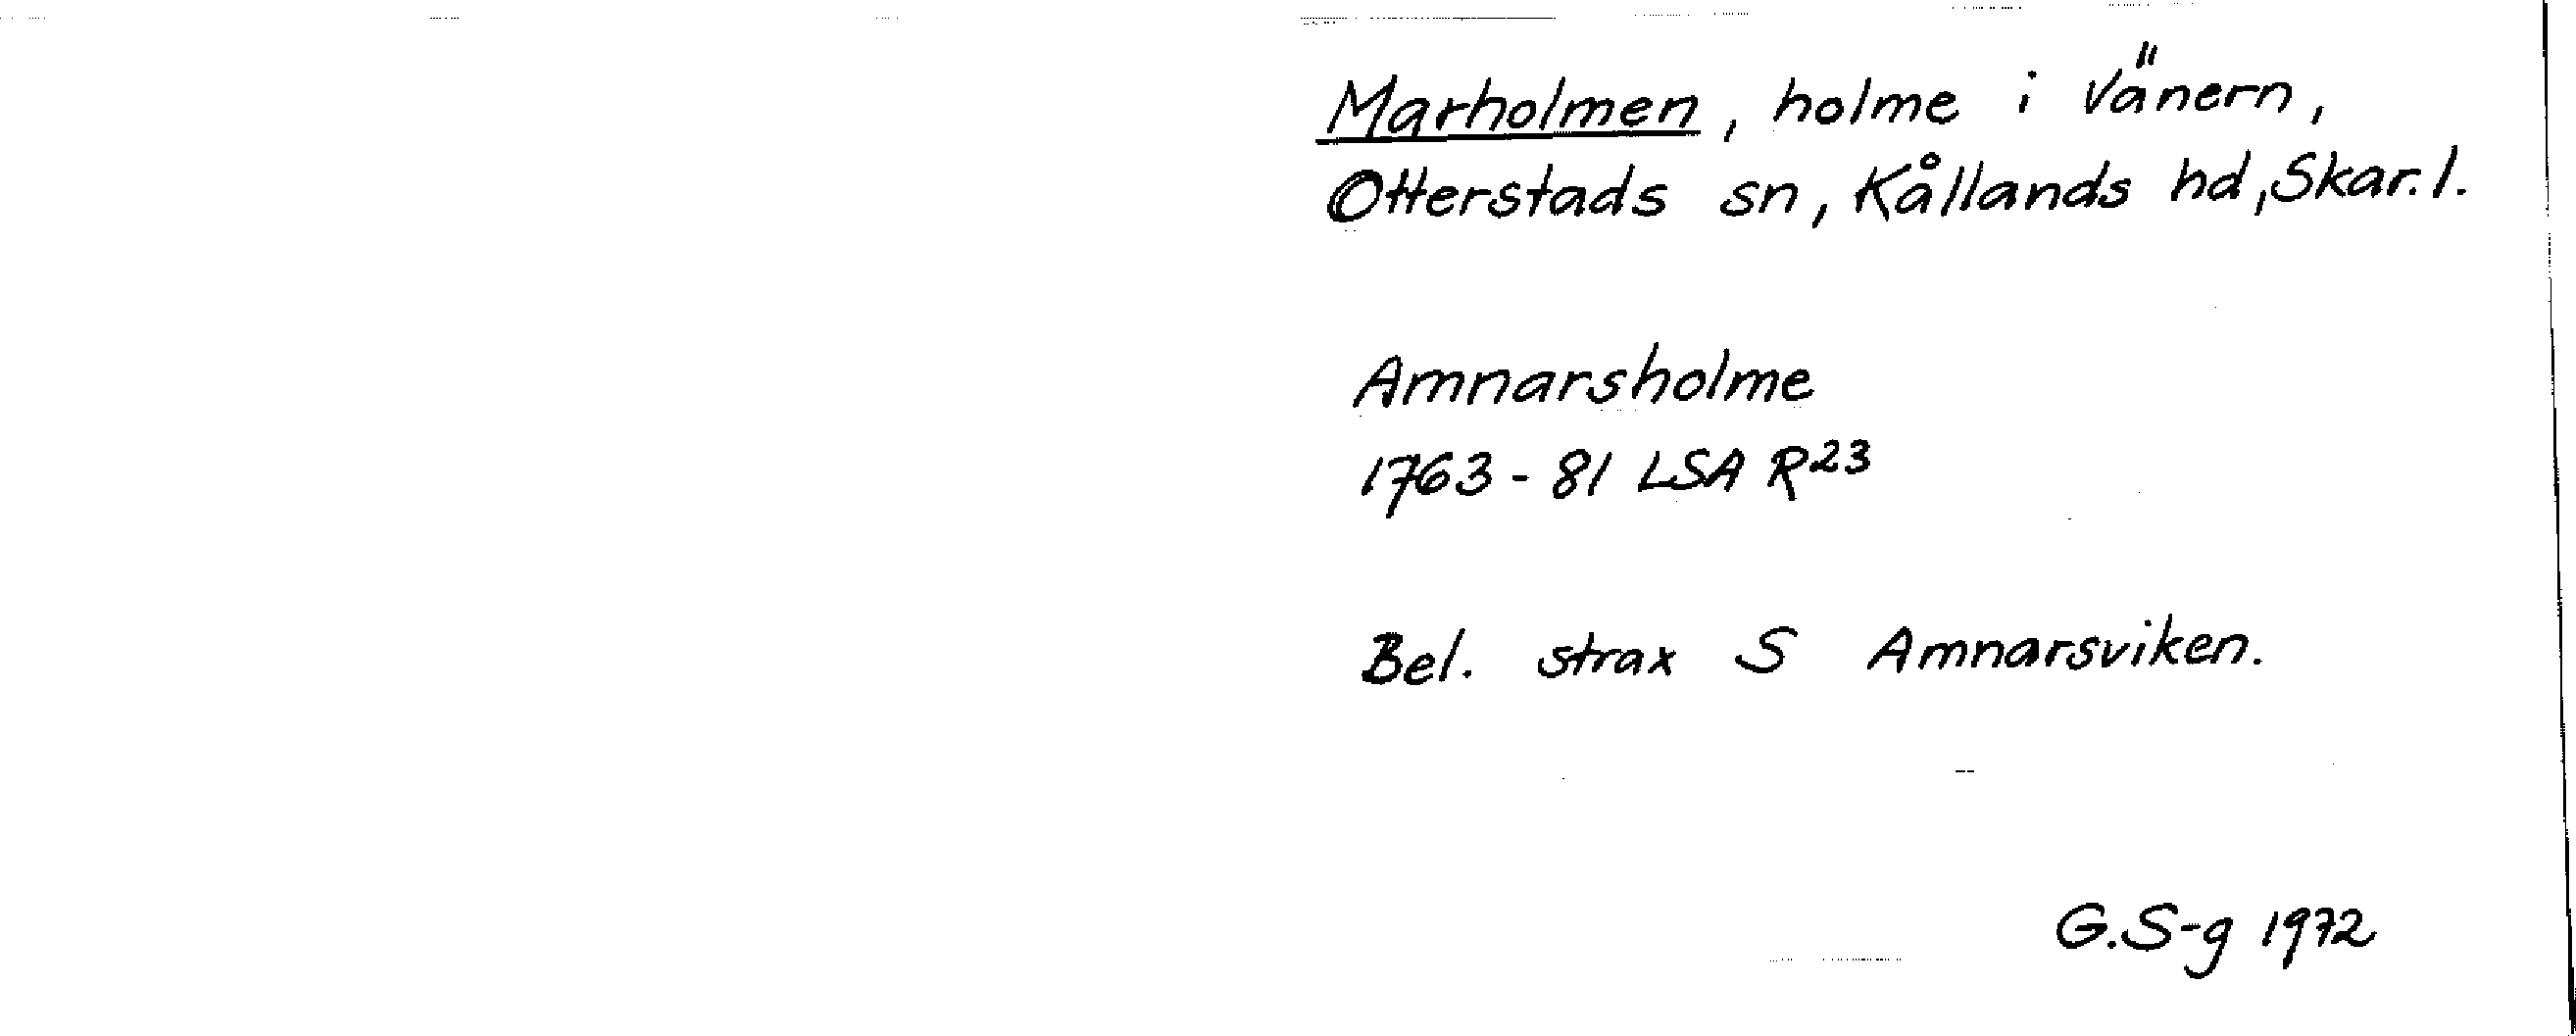 Marholmen, holme i Vänern,
Otterstads sn, Kållands hd, Skar. l.
Amnarsholme
1763-81 LSA R²³
Bel. strax S Amnarsviken.
G.S-g 1972